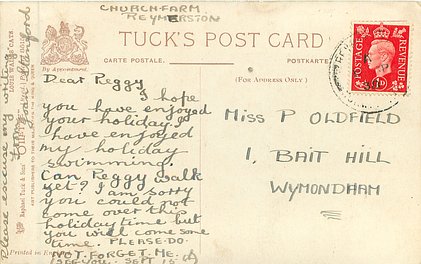 CHURCH-FARM.
REYMERSTON
TUCK'S POST CARD
CARTE POSTALE.
POSTKARTE
(FOR ADDRESS ONLY.)
By Appointment.
Raphael Tuck & Sons
POSTAGE
REVENUE
1D
Dear Peggy
I hope
you have enjoyed
your holiday. I
have enjoyed
my holiday
swimming.
Can Peggy walk
yet? I am sorry
you could not
come over this
holiday time but
you will come some
time. PLEASE-DO.
NOT-FORGET. ME.
SEE YOU. SEPT 15
Please excuse my writing
Printed in England
MISS P OLDFIELD
1, BAIT HILL
WYMONDHAM